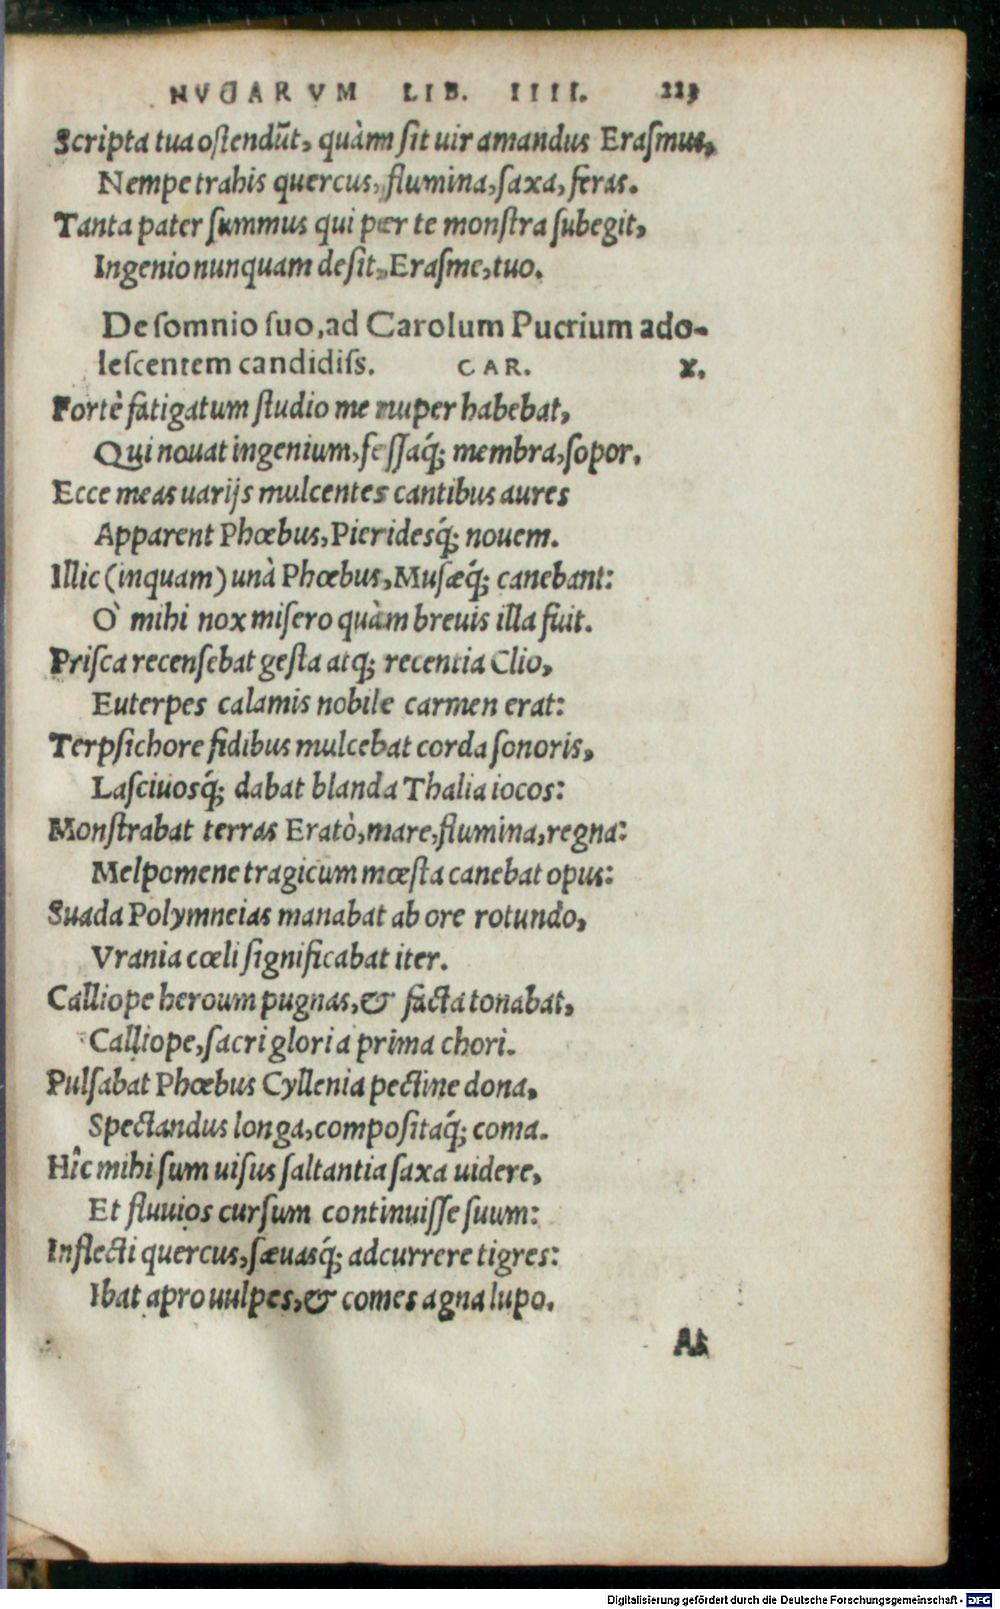 NUGARUM LIB. IIII. 223
Scripta tua ostendūt, quàm sit uir amandus Erasmus,
Nempe trahis quercus, flumina, saxa, feras.
Tanta pater summus qui per te monstra subegit,
Ingenio nunquam desit, Erasme, tuo.
De somnio suo, ad Carolum Pucrium ado-
lescentem candidiss. CAR. X.
Fortè fatigatum studio me nuper habebat,
Qui nouat ingenium, fessaq́; membra, sopor.
Ecce meas uarijs mulcentes cantibus aures
Apparent Phœbus, Pieridesq́; nouem.
Illic (inquam) unà Phœbus, Musæq́; canebant:
Ò mihi nox misero quàm breuis illa fuit.
Prisca recensebat gesta atq; recentia Clio,
Euterpes calamis nobile carmen erat:
Terpsichore fidibus mulcebat corda sonoris,
Lasciuosq́; dabat blanda Thalia iocos:
Monstrabat terras Eratò, mare, flumina, regna:
Melpomene tragicum mœsta canebat opus:
Suada Polymneias manabat ab ore rotundo,
Vrania cœli significabat iter.
Calliope heroum pugnas, & facta tonabat,
Calliope, sacri gloria prima chori.
Pulsabat Phœbus Cyllenia pectine dona,
Spectandus longa, compositaq́; coma.
Hîc mihi sum uisus saltantia saxa uidere,
Et fluuios cursum continuisse suum:
Inflecti quercus, sæuasq́; adcurrere tigres:
Ibat apro uulpes, & comes agna lupo.
At
Digitalisierung gefördert durch die Deutsche Forschungsgemeinschaft - DFG